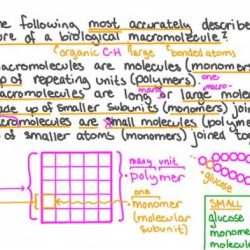 he following most accurately describe
ure of a biological macromolecule?
organic C-H large bonded atoms
acromolecules are molecules (monomers
p of repeating units (polymers). one
macro-
acromolecules are long or large molec
many
ade up of smaller subunits (monomers) joined
acromolecules are small molecules (polym
of smaller atoms (monomers) joined tog
many unit
polymer
one
monomer
(molecular
subunit)
glucose
SMALL
glucose
monome
molecul